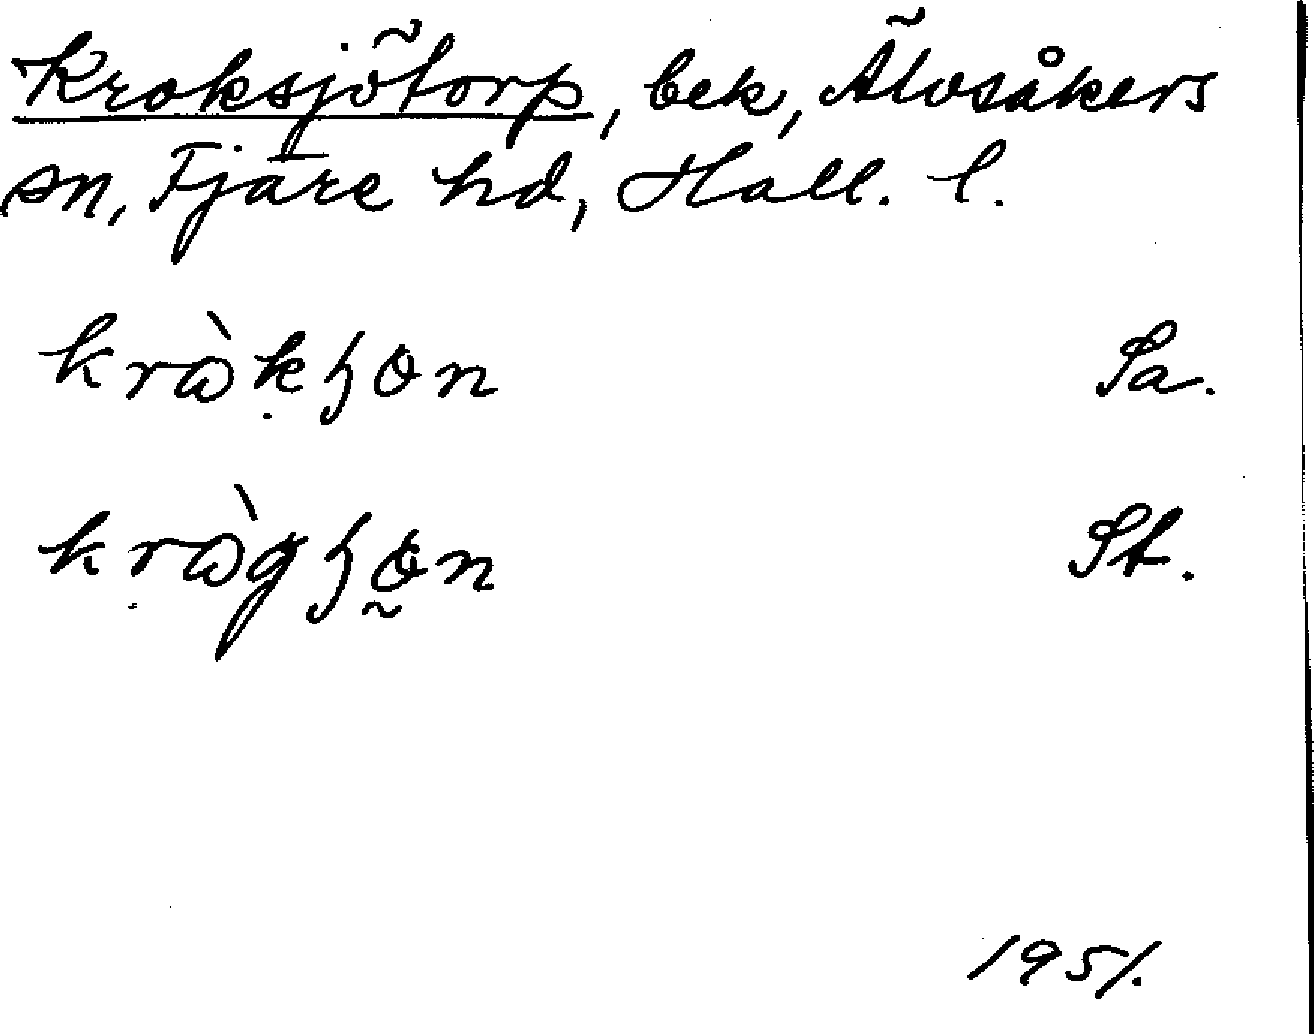 Kroksjötorp, bek, Älvsåkers
sn, Fjäre hd, Hall. l.
krὼḳɧon Sa.
kṛὼgɧo̰n St.
1951.